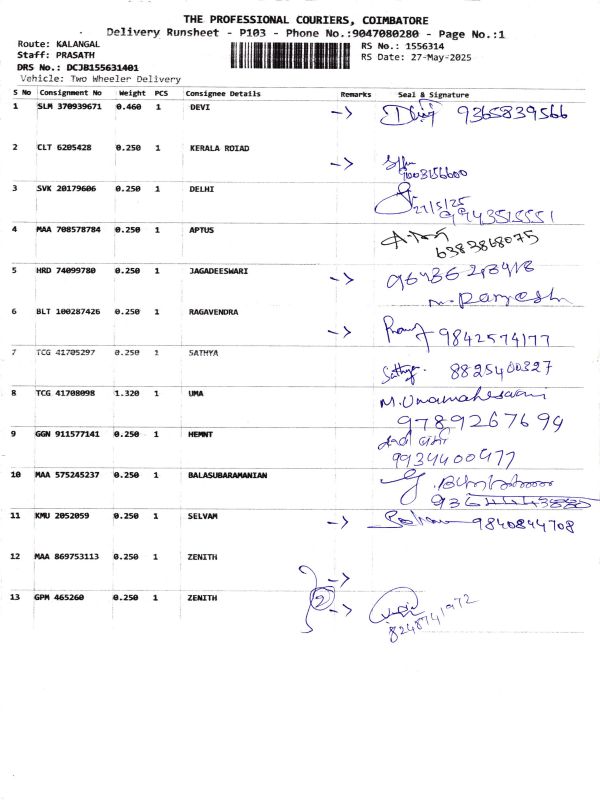 THE PROFESSIONAL COURIERS, COIMBATORE
Delivery Runsheet - P103 - Phone No.:9047080280 - Page No.:1
Route: KALANGAL
RS No.: 1556314
Staff: PRASATH
RS Date: 27-May-2025
DRS No.: DCJB155631401
Vehicle: Two Wheeler Delivery
S No Consignment No Weight PCS Consignee Details Remarks Seal & Signature
1 SLM 370939671 0.460 1 DEVI -> 9365839566
2 CLT 6205428 0.250 1 KERALA ROIAD
-> 9003156600
3 SVK 20179606 0.250 1 DELHI
27/5/25
9943515551
4 MAA 708578784 0.250 1 APTUS
6383868075
5 HRD 74099780 0.250 1 JAGADEESWARI ->
6 BLT 100287426 0.250 1 RAGAVENDRA
-> 9842574177
7 TCG 41705297 0.250 1 SATHYA
Sathya. 8825400327
8 TCG 41708098 1.320 1 UMA M.Umamaheswari
9789267699
9 GGN 911577141 0.250 1 HEMNT
9934400477
10 MAA 575245237 0.250 1 BALASUBARAMANIAN
11 KMU 2052059 0.250 1 SELVAM -> 9840844708
12 MAA 869753113 0.250 1 ZENITH
->
13 GPM 465260 0.250 1 ZENITH 2 ->
8248741972